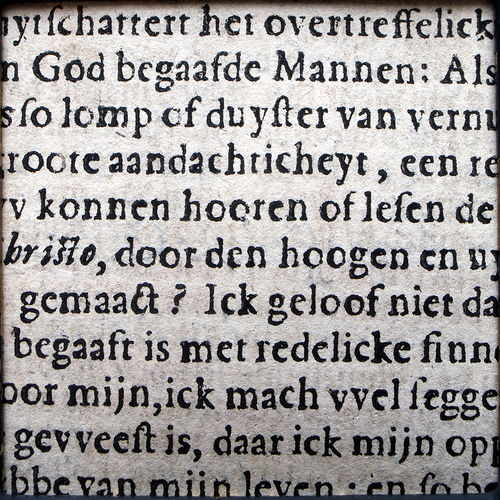 uytſchattert het overtreffelick
n God begaafde Mannen: Als
sſo lomp of duyſter van vernu
groote aandachticheyt, een re
y konnen hooren of leſen de
briſto, door den hoogen en uy
gemaact? Ick geloof niet da
begaaft is met redelicke ſinne
oor mijn, ick mach vvel ſegge
gevveeſt is, daar ick mijn op
bbe van mijn leven: en ſo be